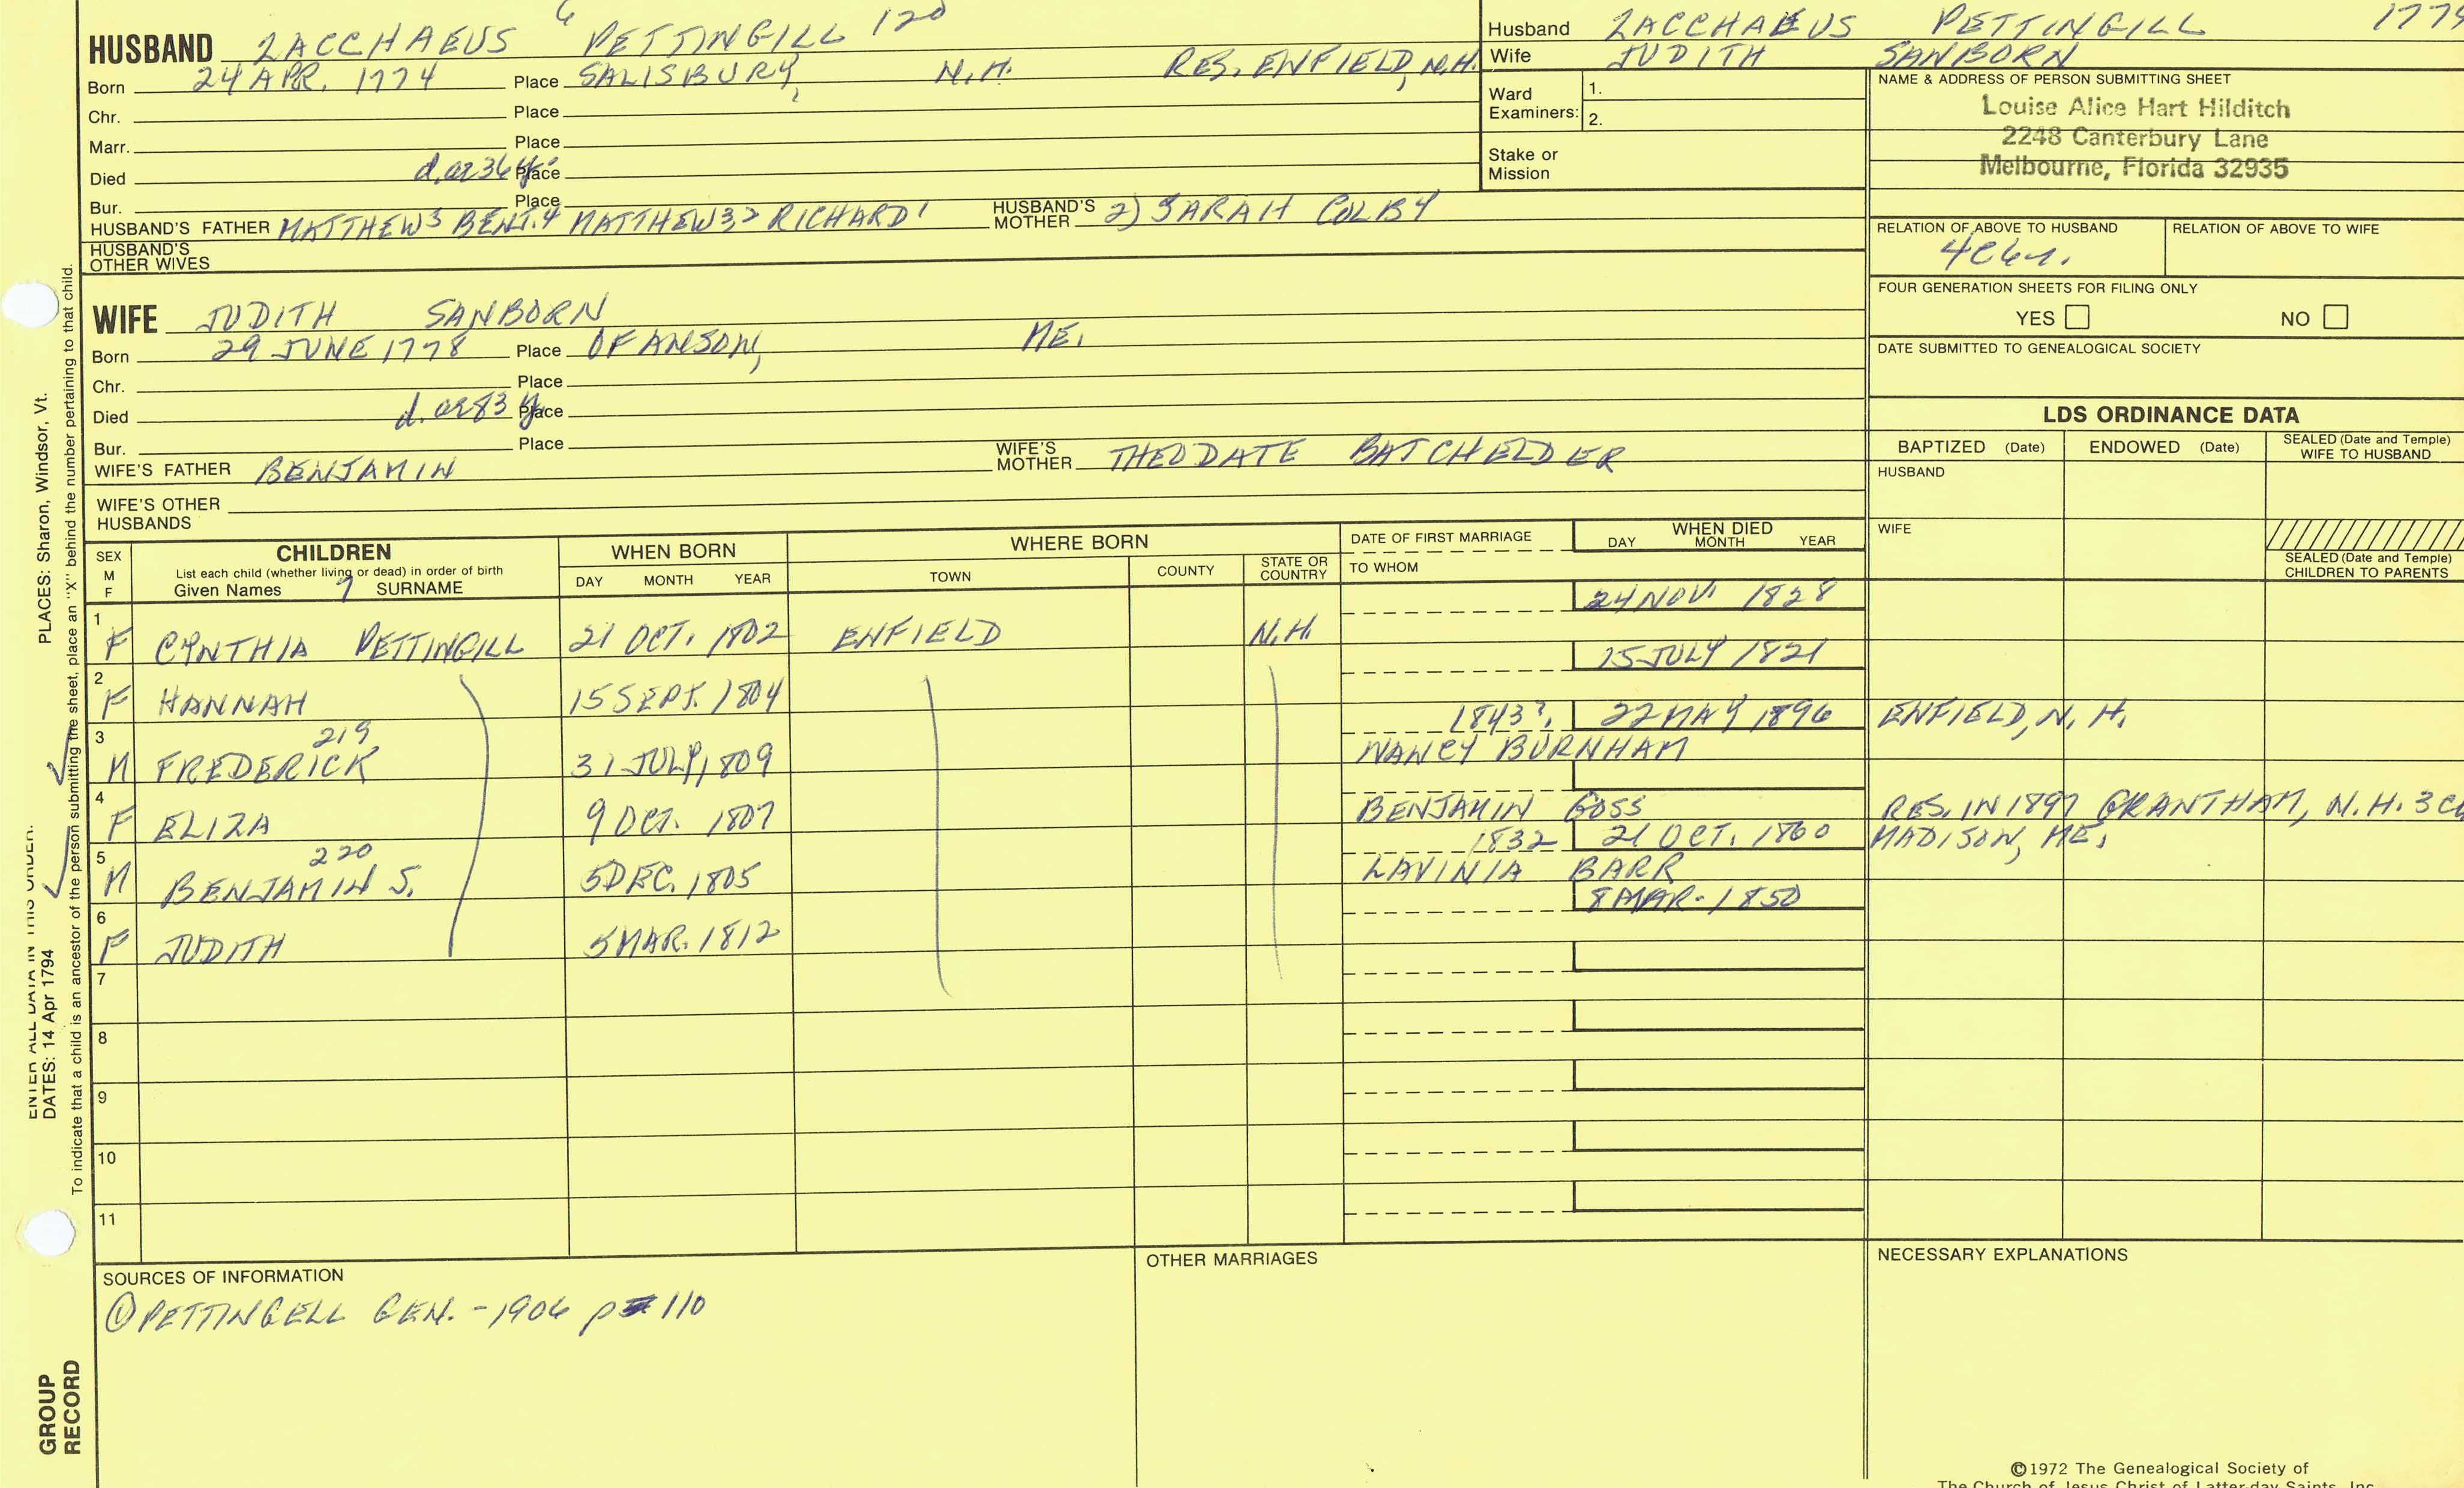 HUSBAND ZACCHAEUS 6 PETTINGILL 120
Born 24 APR. 1774 Place SALISBURY, N.H. RES. ENFIELD, N.H.
Chr. Place
Marr. Place
Died d. ae 36 y. Place
Bur. Place
HUSBAND'S FATHER MATTHEW5 BENJ.4 MATTHEW32 RICHARD1 HUSBAND'S MOTHER 2) SARAH COLBY
HUSBAND'S OTHER WIVES
Husband ZACCHAEUS PETTINGILL
Wife JUDITH SANBORN
Ward Examiners: 1.
2.
Stake or Mission
NAME & ADDRESS OF PERSON SUBMITTING SHEET
Louise Alice Hart Hilditch
2248 Canterbury Lane
Melbourne, Florida 32935
RELATION OF ABOVE TO HUSBAND RELATION OF ABOVE TO WIFE
FOUR GENERATION SHEETS FOR FILING ONLY
YES NO
DATE SUBMITTED TO GENEALOGICAL SOCIETY
WIFE JUDITH SANBORN
Born 29 JUNE 1778 Place OF ANSON, ME.
Chr. Place
Died d. ae 83 y Place
Bur. Place
WIFE'S FATHER BENJAMIN WIFE'S MOTHER THEODATE BATCHELDER
WIFE'S OTHER HUSBANDS
LDS ORDINANCE DATA
BAPTIZED (Date) ENDOWED (Date) SEALED (Date and Temple) WIFE TO HUSBAND
HUSBAND
WIFE
SEALED (Date and Temple) CHILDREN TO PARENTS
SEX M F
CHILDREN
List each child (whether living or dead) in order of birth
Given Names 7 SURNAME
WHEN BORN
DAY MONTH YEAR
WHERE BORN
TOWN COUNTY STATE OR COUNTRY
DATE OF FIRST MARRIAGE
TO WHOM
WHEN DIED
DAY MONTH YEAR
1 F CYNTHIA PETTINGILL 21 OCT. 1802 ENFIELD N.H. 24 NOV. 1828
2 F HANNAH 15 SEPT. 1804 15 JULY 1821
3 M FREDERICK 219 31 JULY, 1809 1843?. 22 MAY 1896 ENFIELD, N.H.
NANCY BURNHAM
4 F ELIZA 9 OCT. 1807 BENJAMIN GOSS RES. IN 1897 GRANTHAM, N.H. 3
5 M BENJAMIN S. 220 5 DEC. 1805 1832 21 OCT. 1860 MADISON, ME.
LAVINIA BARR
6 F JUDITH 5 MAR. 1812 8 MAR. 1850
7
8
9
10
11
SOURCES OF INFORMATION
① PETTINGELL GEN. - 1906 p 110
OTHER MARRIAGES
NECESSARY EXPLANATIONS
©1972 The Genealogical Society of
The Church of Jesus Christ of Latter-day Saints, Inc.
PLACES: Sharon, Windsor, Vt.
ENTER ALL DATA IN THIS ORDER:
DATES: 14 Apr 1794
To indicate that a child is an ancestor of the person submitting the sheet, place an "X" behind the number pertaining to that child.
GROUP
RECORD